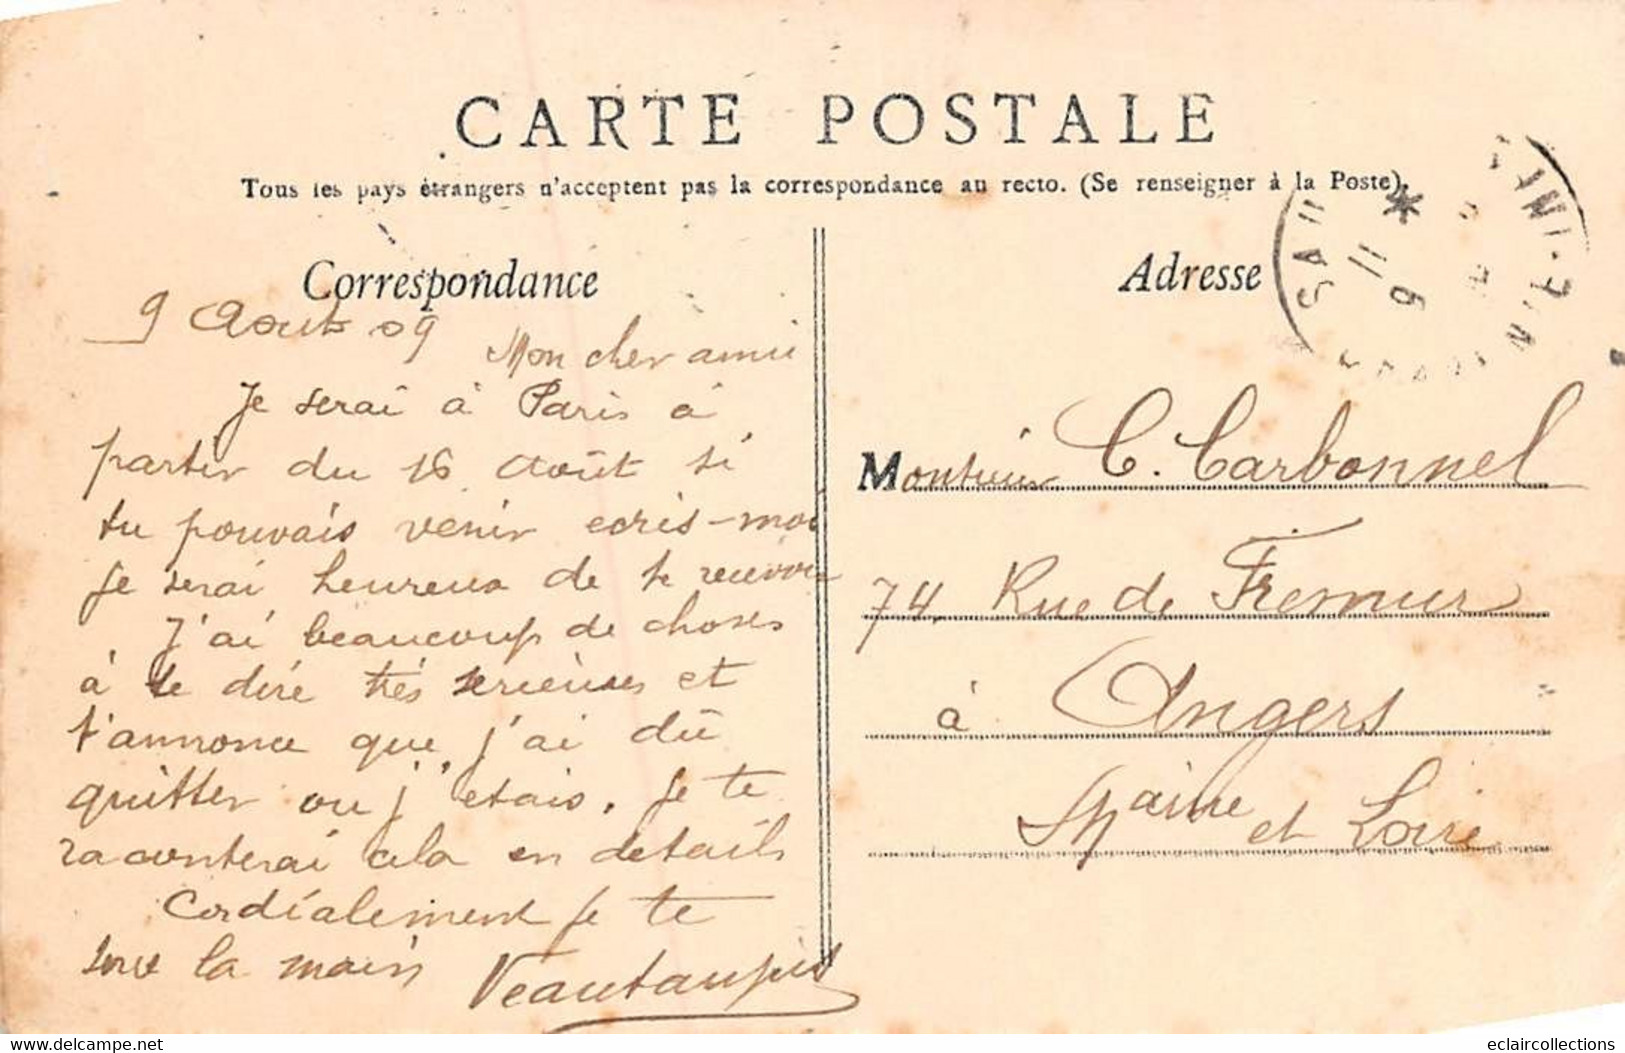 CARTE POSTALE
Tous les pays étrangers n'acceptent pas la correspondance au recto. (Se renseigner à la Poste).
Correspondance
9 Août 09
Mon cher ami
Je serai à Paris à
partir du 16 Août si
tu pouvais venir ecris-moi
je serai heureux de te recevoir
J'ai beaucoup de choses
à te dire très serieuses et
t'annonce que j'ai dû
quitter ou j'etais. Je te
raconterai cela en details
Cordialement je te
serre la main
Adresse
Monsieur C. Carbonnel
74 Rue de Fremur
à Angers
Maine et Loire
11
9
delcampe.net
eclaircollections